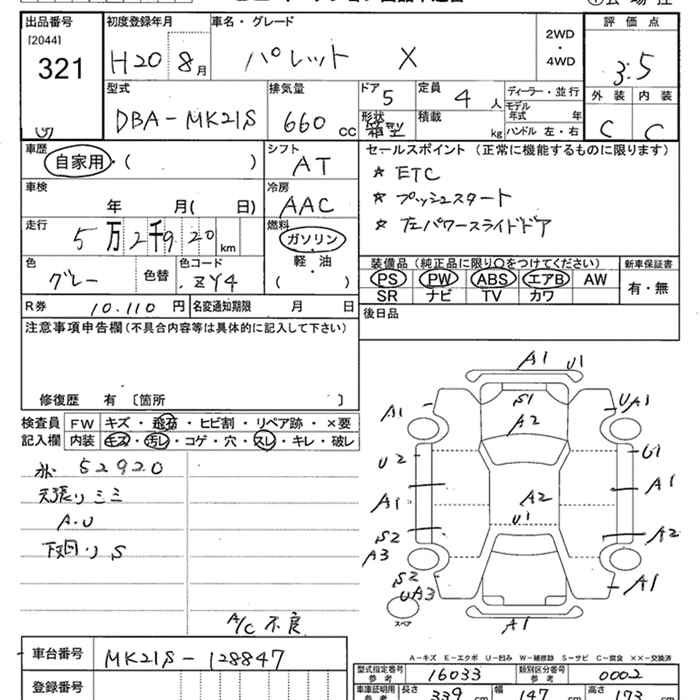 出品番号 [2044] 321
初度登録年月 H20 8月
車名・グレード パレット X
2WD・4WD
評価点 3.5
外装 内装
C C
型式 DBA-MK21S
排気量 660 cc
ドア 5
定員 4 人
ディーラー・並行
モデル年式 年
形状 箱型
積載 kg
ハンドル 左・右
車歴 自家用・( )
シフト AT
セールスポイント (正常に機能するものに限ります)
★ ETC
★ プッシュスタート
★ 左パワースライドドア
車検 年 月( 日)
冷房 AAC
走行 5万2千920 km
燃料 ガソリン・軽油 ( )
色 グレー 色替
色コード ZY4
装備品 (純正品に限り○をつけてください)
PS PW ABS エアB AW
SR ナビ TV カワ
新車保証書 有・無
R券 10,110 円
名変通知期限 月 日
後日品
注意事項申告欄 (不具合内容等は具体的に記入して下さい)
修復歴 有 〔箇所 〕
検査員記入欄
FW キズ・飛石・ヒビ割・リペア跡・×要
内装 キズ・汚レ・コゲ・穴・スレ・キレ・破レ
52920
天張りシミ
A.U
下廻り S
A/C 不良
A1 U1
S1
A2
A1 UA1
U2 U1
A1 A2 A1
S2 U1 A2
A3
S2
UA3 A1
スペア
A1
A-キズ E-エクボ U-凹み W-補修跡 S-サビ C-腐食 ××-交換済
車台番号 MK21S-128847
登録番号
型式指定番号 参考 16033
類別区分番号 参考 0002
車庫証明用 参考 長さ 339 cm 幅 147 cm 高さ 173 cm